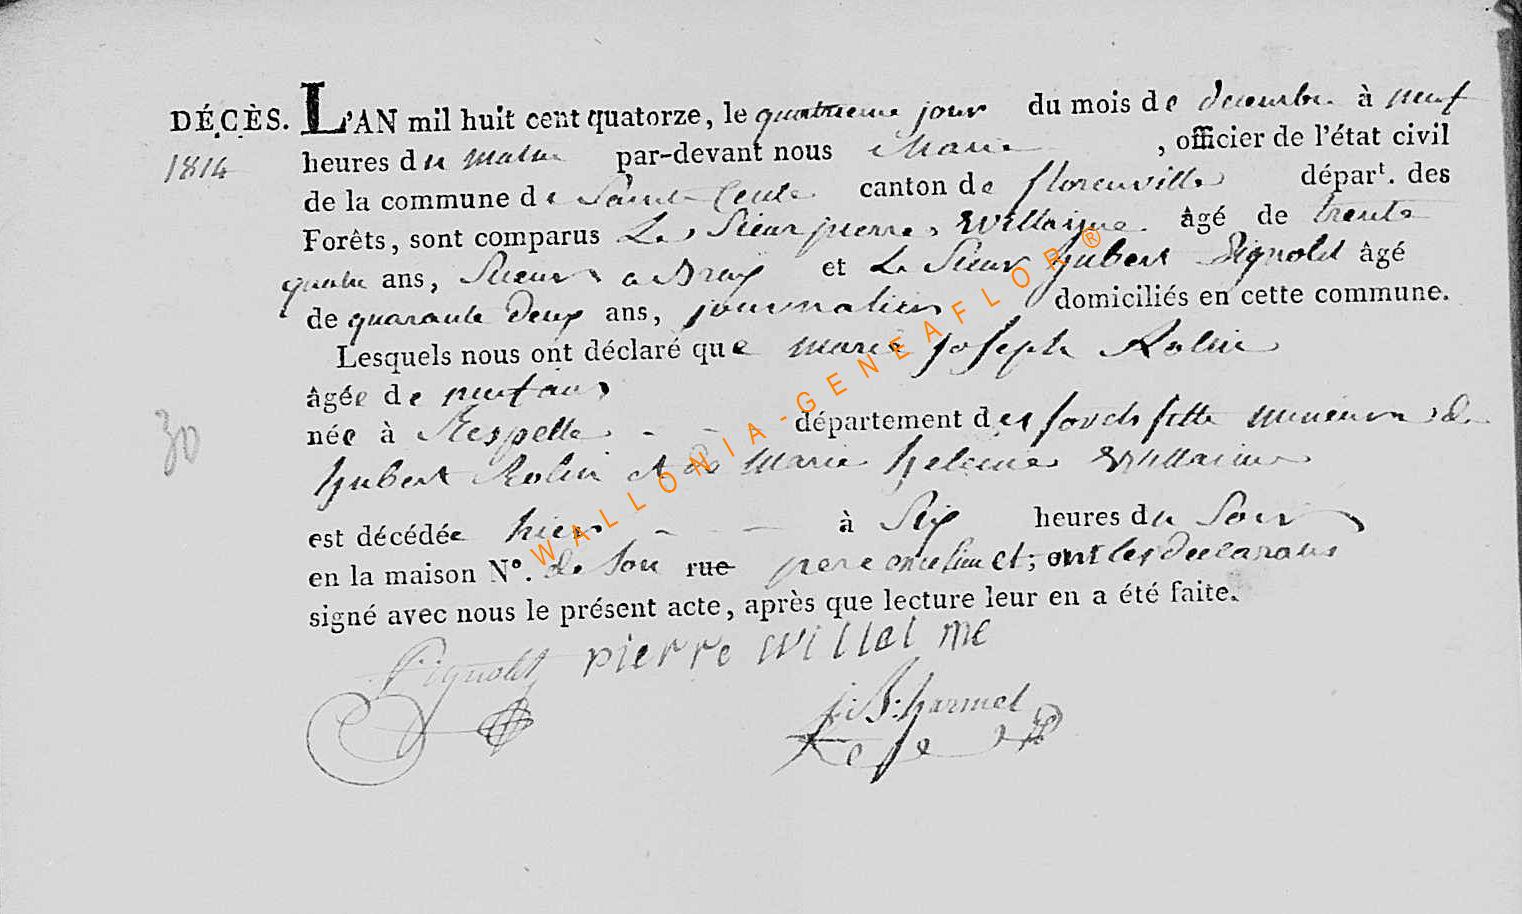 DÉCÈS. L'AN mil huit cent quatorze, le quatrieme jour du mois de decembre à neuf
1814 heures du matin par-devant nous Maire, officier de l'état civil
de la commune de Sainte Cecile canton de florenville départ. des
Forêts, sont comparus Le Sieur pierre Willaime âgé de trente
quatre ans, Sieur a Bray et Le Sieur hubert Pignolet âgé
de quarante deux ans, journalier domiciliés en cette commune.
Lesquels nous ont déclaré que marie joseph Rolin
âgée de neuf ans
30
née à département des forets fille mineure de
hubert Rolin et de Marie helaine Willaime
est décédée hier à Six heures du Soir
en la maison N°. de Son rue pere ont les declarans
signé avec nous le présent acte, après que lecture leur en a été faite.
Pignolet pierre Willalme
j: B: harmel
WALLONIA-GENEAFLOR®